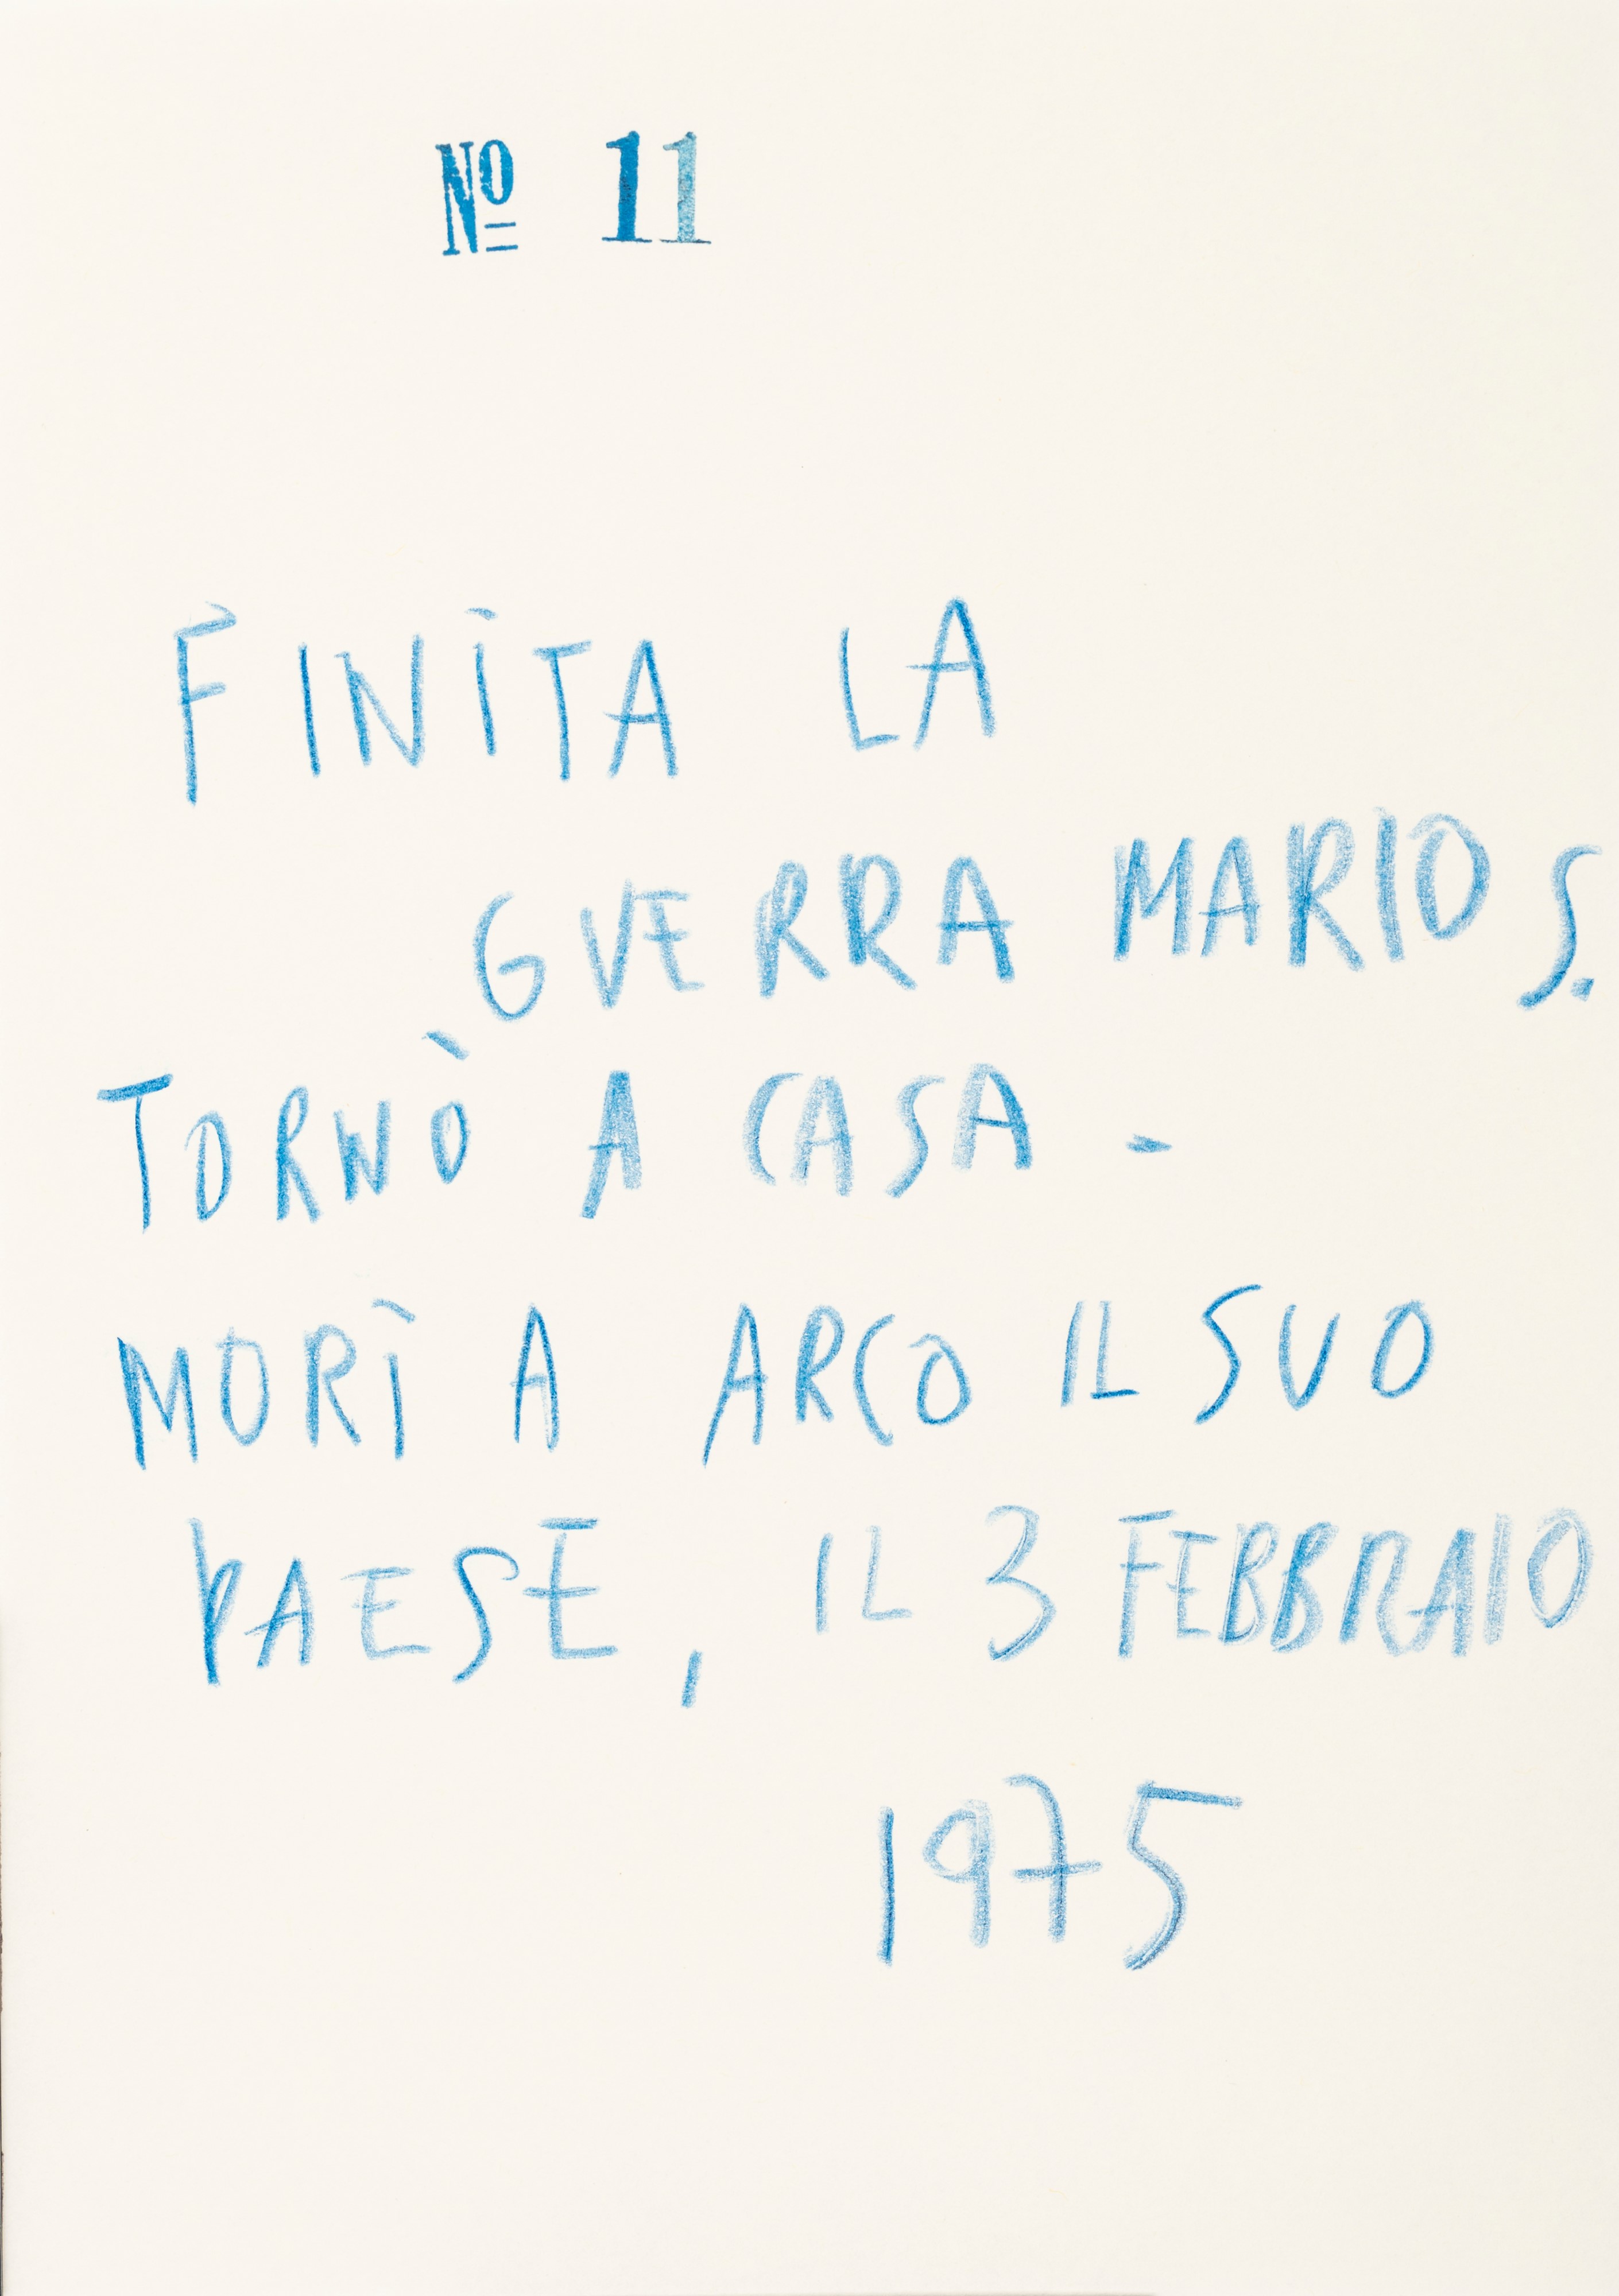 Nº 11
FINITA LA
GUERRA MARIO S.
TORNÒ A CASA -
MORÌ A ARCO IL SUO
PAESE, IL 3 FEBBRAIO
1975